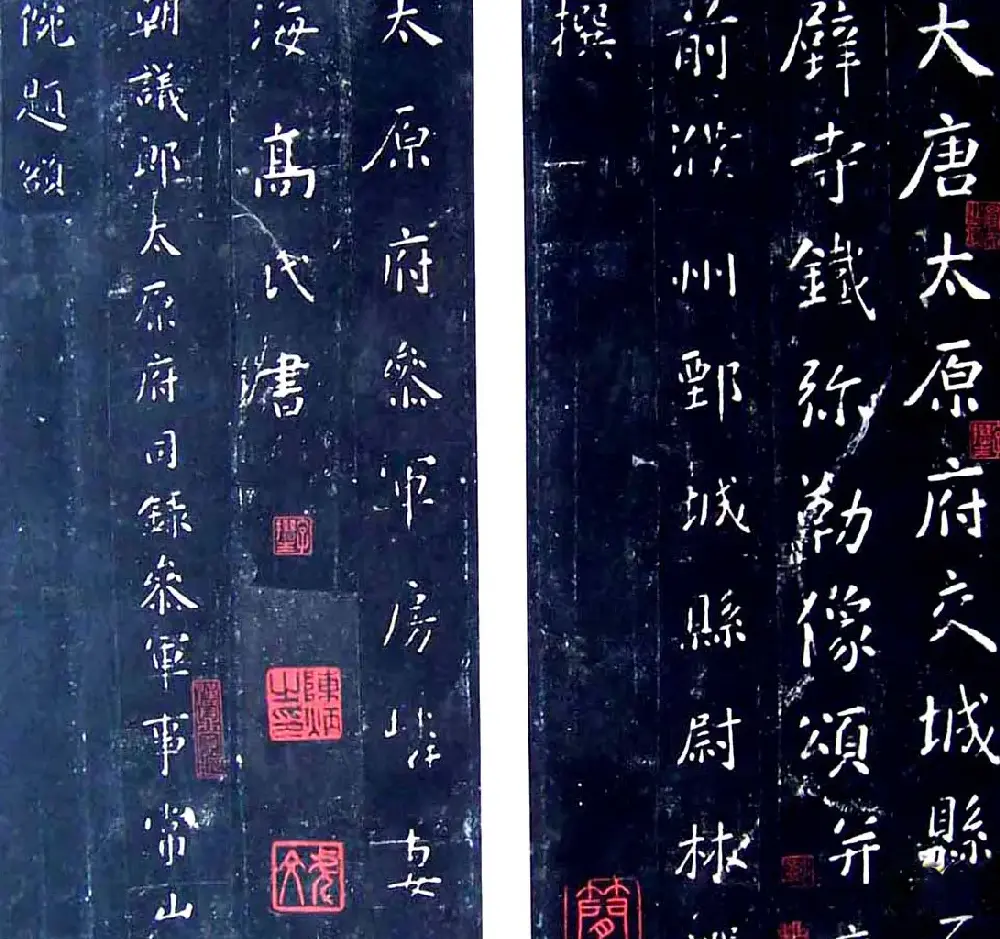 大唐太原府交城縣
壁寺鐵弥勒像頌并
前濮州鄄城縣尉林
撰
太原府參軍房嶙妻
海髙氏書
陳炳之印
朝議郎太原府司錄參軍事常山
題額